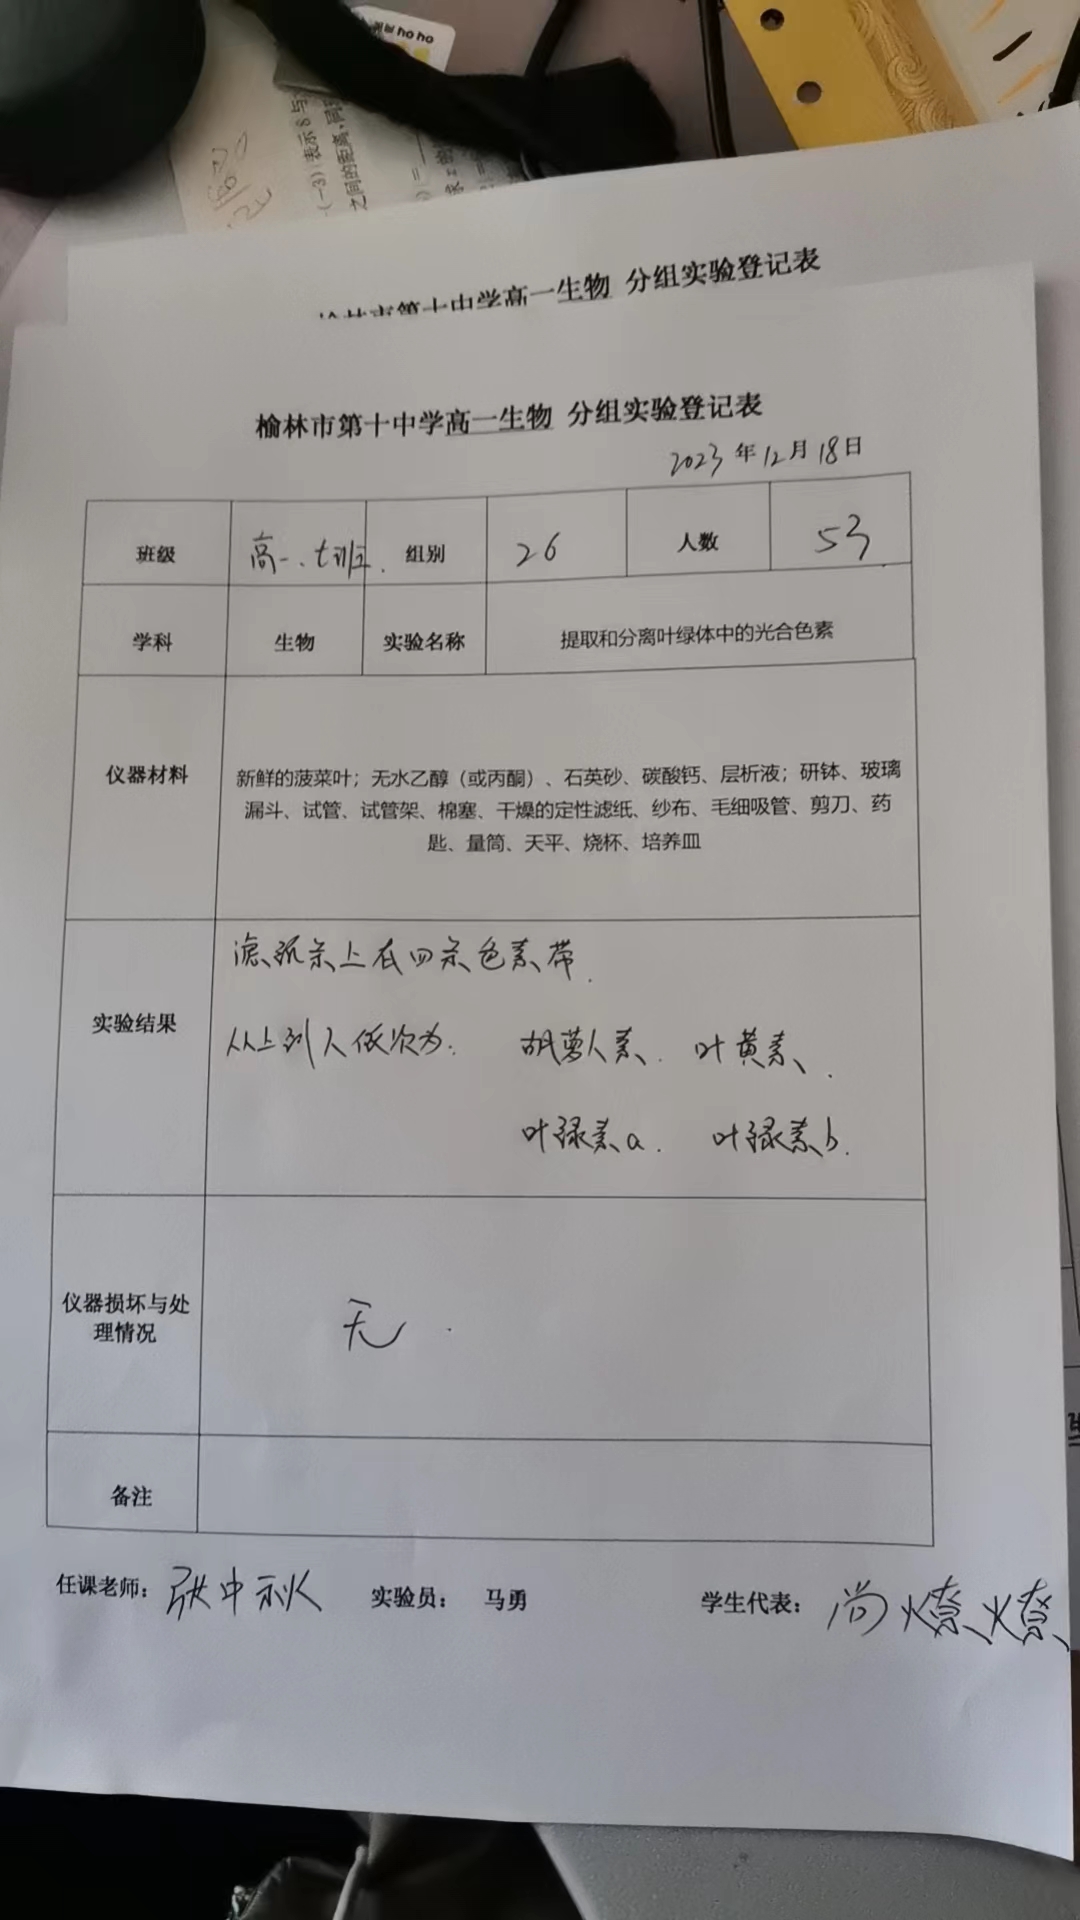 ho ho
(-3)|表示8与
之间的距离,同
榆林市第十中学高一生物 分组实验登记表
榆林市第十中学高一生物 分组实验登记表
2023年12月18日
班级 高一.七班. 组别 26 人数 53
学科 生物 实验名称 提取和分离叶绿体中的光合色素
仪器材料
新鲜的菠菜叶；无水乙醇（或丙酮）、石英砂、碳酸钙、层析液；研钵、玻璃
漏斗、试管、试管架、棉塞、干燥的定性滤纸、纱布、毛细吸管、剪刀、药
匙、量筒、天平、烧杯、培养皿
实验结果
滤纸条上有四条色素带.
从上到下依次为: 胡萝卜素. 叶黄素、.
叶绿素a. 叶绿素b.
仪器损坏与处
理情况
无.
备注
任课老师：张中秋 实验员： 马勇 学生代表：尚燎燎